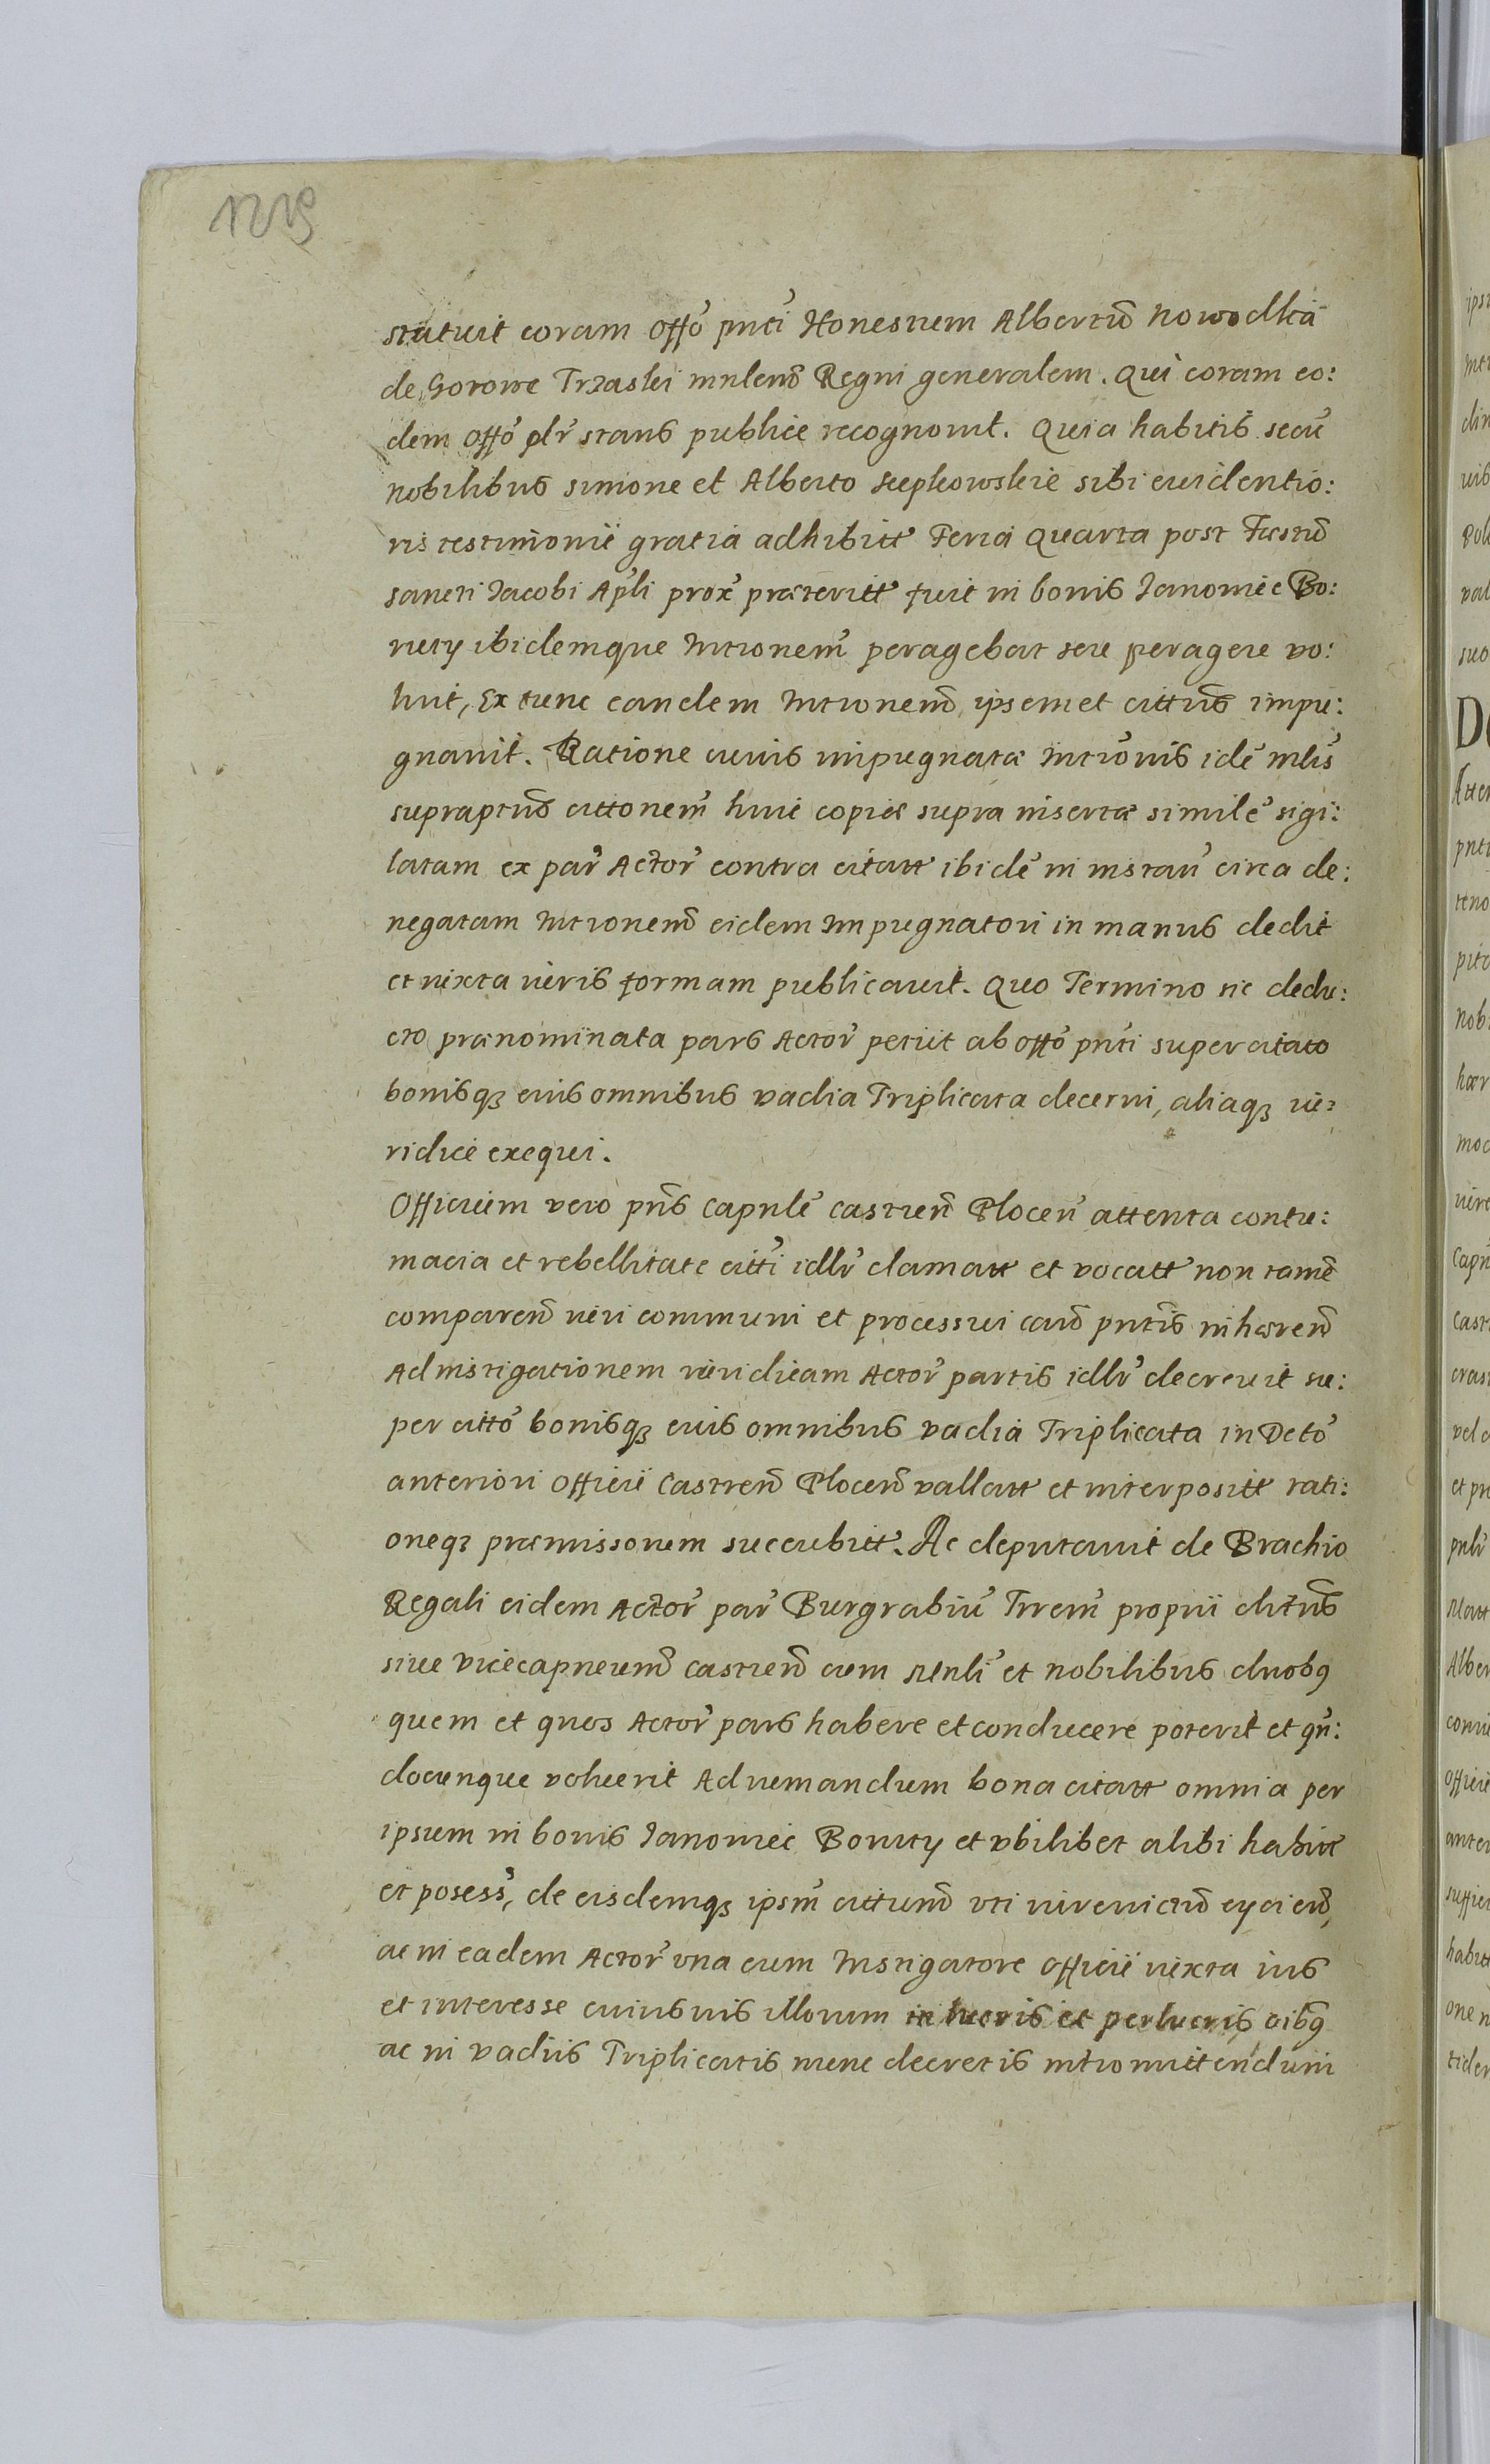 1219
statuit coram Offo pnti Honestum Albertu Nowodlka
de Gorowe Trzaski mnlem Regni generalem. Qui coram eo:
dem Offo plr stans publice recognouit. Quia habitis secu
nobilibus Simone et Alberto Seepkowskie sibi euidentio:
ris testimonii gratia adhibitt Feria Quarta post Festu
sancti Jacobi Apli prox præteritt fuit in bonis Janowiec Bo:
ruty ibidemque Intronem peragebat seu peragere vo:
luit, Ex tunc eandem Intronem ipsemet cittus impu:
gnauit. Ratione cuius impugnatæ Intronis ide mlis
supraptus cittonem huic copiæ supra insertæ simile sigi:
latam ex par Actor contra citatt ibide in instan circa de:
negatam Intronem eidem Impugnatori in manus dedit
et iuxta iuris formam publicauit. Quo Termino sic dedu:
cto prænominata pars Actor petiit ab offo pnti super citato
bonisq3 eius omnibus vadia Triplicata decerni, aliaq3 iu:
ridice exequi.
Officium vero pns Capnle Castren Plocen attenta contu:
macia et rebellitate citti idlr clamatt et vocatt non tame
comparen iuri communi et processui caus pntis inhæren
Ad instigationem iuridicam Actor partis idlr decreuit su:
per citto bonisq3 eius omnibus vadia Triplicata in Dcto
anteriori Officii Castren Plocen vallatt et interpositt rati:
oneq3 præmissorum succubitt. Ac deputauit de Brachio
Regali eidem Actor par Burgrabiu Trrem proprii
siue vicecapneum castren cum mnli et nobilibus duobq
quem et quos Actor pars habere et conducere poterit et qn:
docunque voluerit Ad uemandum bona citatt omnia per
ipsum in bonis Janowiec Boruty et vbilibet alibi habitt
et posess, de eisdemq3 ipsm cittum vti iureuictu eyciend,
ac in eadem Actor vna cum Instigatore Officii iuxta ius
et interesse cuiusuis illorum in lucris et perlucris oibq
ac in vadiis Triplicatis nunc decretis intromittendum